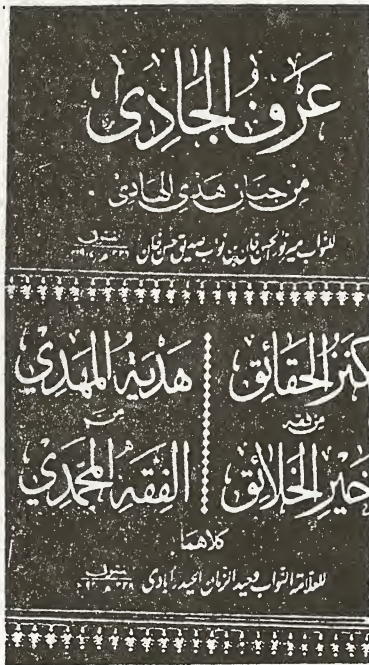 عَرفُ الجَادِی
مِن جنان هَدی الهَادِی
للنواب میر نور الحسن خان بن نواب صدیق حسن خان المتوفی ۱۳۳۶ھ
كنز الحقائق
من فقه
خير الخلائق
هدية المهدي
من
الفقه المحمدي
كلاهما
للعلامة النواب وحيد الزمان الحيدرآبادی المتوفی ۱۳۳۸ھ